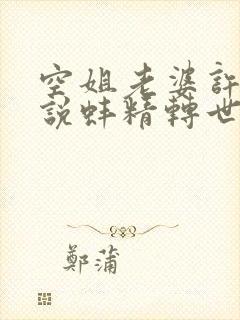 空姐老婆許
說蚌精轉世
鄭蒲